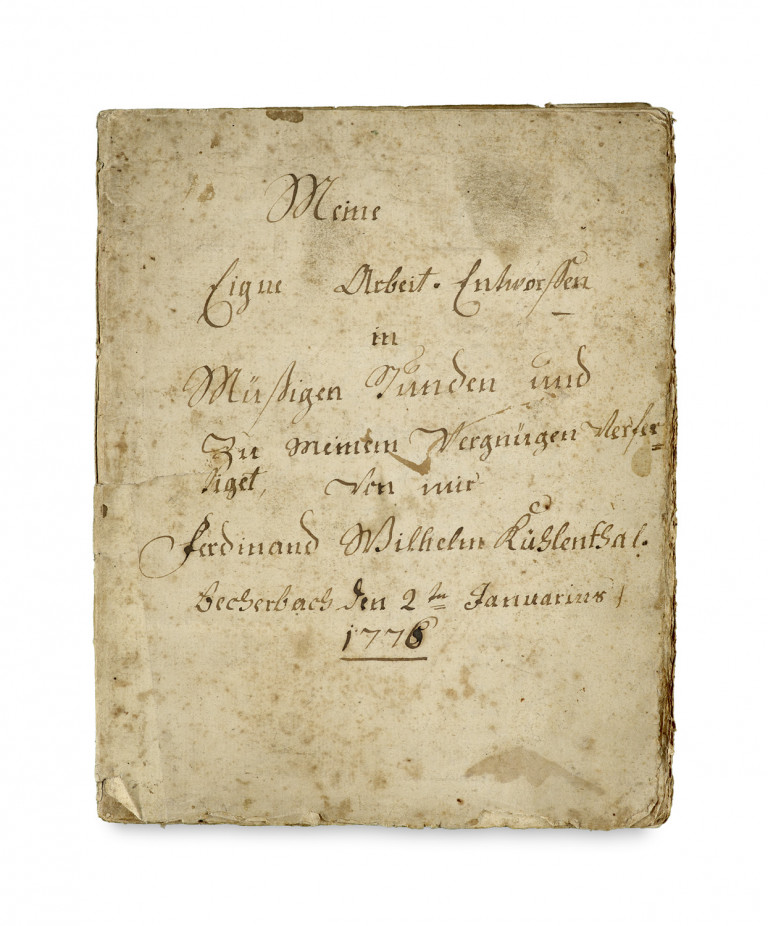 Meine
Eigne Arbeit. Entworffen
in
Müßigen Stunden und
Zu meinem Vergnügen Verfer=
tiget, von mir
Ferdinand Wilhelm Kühlenthal.
Becherbach den 2ten Januarius
1776